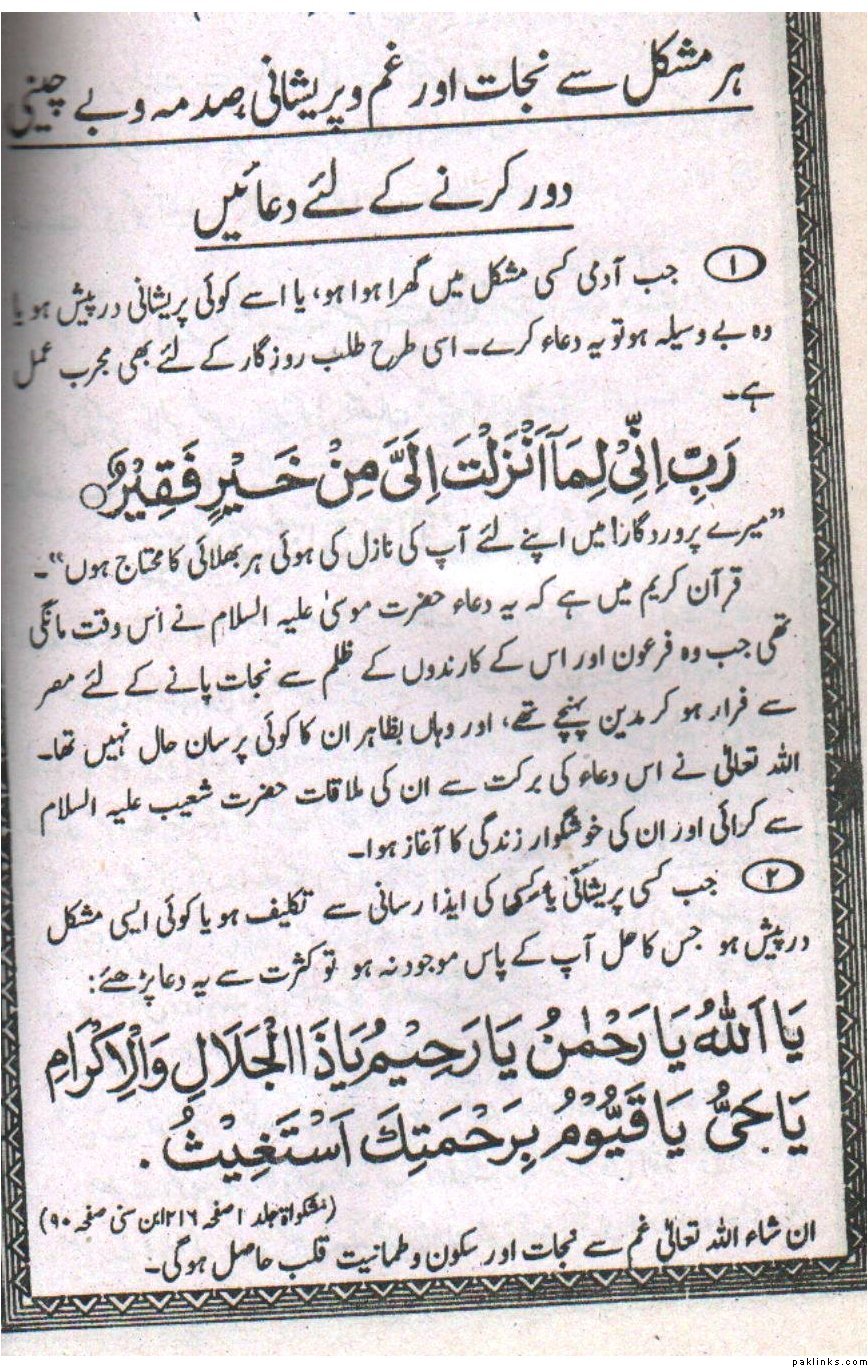 ہر مشکل سے نجات اور غم و پریشانی، صدمہ و بے چینی
دور کرنے کے لئے دعائیں
۱ جب آدمی کسی مشکل میں گھرا ہوا ہو، یا اسے کوئی پریشانی درپیش ہو یا
وہ بے وسیلہ ہو تو یہ دعاء کرے۔ اسی طرح طلب روزگار کے لئے بھی مجرب عمل
ہے۔
رَبِّ اِنِّیْ لِمَآ اَنْزَلْتَ اِلَیَّ مِنْ خَیْرٍ فَقِیْرٌ ○
”میرے پروردگار! میں اپنے لئے آپ کی نازل کی ہوئی ہر بھلائی کا محتاج ہوں“۔
قرآن کریم میں ہے کہ یہ دعاء حضرت موسیٰ علیہ السلام نے اس وقت مانگی
تھی جب وہ فرعون اور اس کے کارندوں کے ظلم سے نجات پانے کے لئے مصر
سے فرار ہو کر مدین پہنچے تھے، اور وہاں بظاہر ان کا کوئی پرسان حال نہیں تھا۔
اللہ تعالیٰ نے اس دعاء کی برکت سے ان کی ملاقات حضرت شعیب علیہ السلام
سے کرائی اور ان کی خوشگوار زندگی کا آغاز ہوا۔
۲ جب کسی پریشانی یا کسی کی ایذا رسانی سے تکلیف ہو یا کوئی ایسی مشکل
درپیش ہو جس کا حل آپ کے پاس موجود نہ ہو تو کثرت سے یہ دعا پڑھئے:
یَا اَللّٰهُ یَا رَحْمٰنُ یَا رَحِیْمُ یَا ذَا الْجَلَالِ وَالْاِکْرَامِ
یَا حَیُّ یَا قَیُّوْمُ بِرَحْمَتِكَ اَسْتَغِیْثُ .
(مشکواۃ جلد ۱ صفحہ ۲۱۶ ابن سنی صفحہ ۹۰)
ان شاء اللہ تعالیٰ غم سے نجات اور سکون و طمانیت قلب حاصل ہوگی۔
paklinks.com